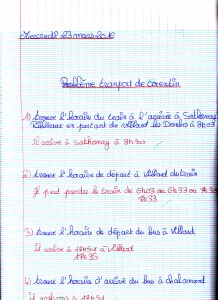 mercredi 23 mars 2016
Problème tranport de corentin
1) trouve l'horaire du train à l'arrivé à Sathonay
Rillieux en partant de villard les Dombes à 9h03
il arrive à Sathonay à 9h30
2) trouve l'horaire de départ à villard du train
Je peut perdre le train de 6h03 ou 6h33 ou 7h03
7h33
3) trouve l'horaire de départ du bus à villard
il arrive à 17h51 à villard
17h35
4) trouve l'horaire d'arrivé du bus à chalamond